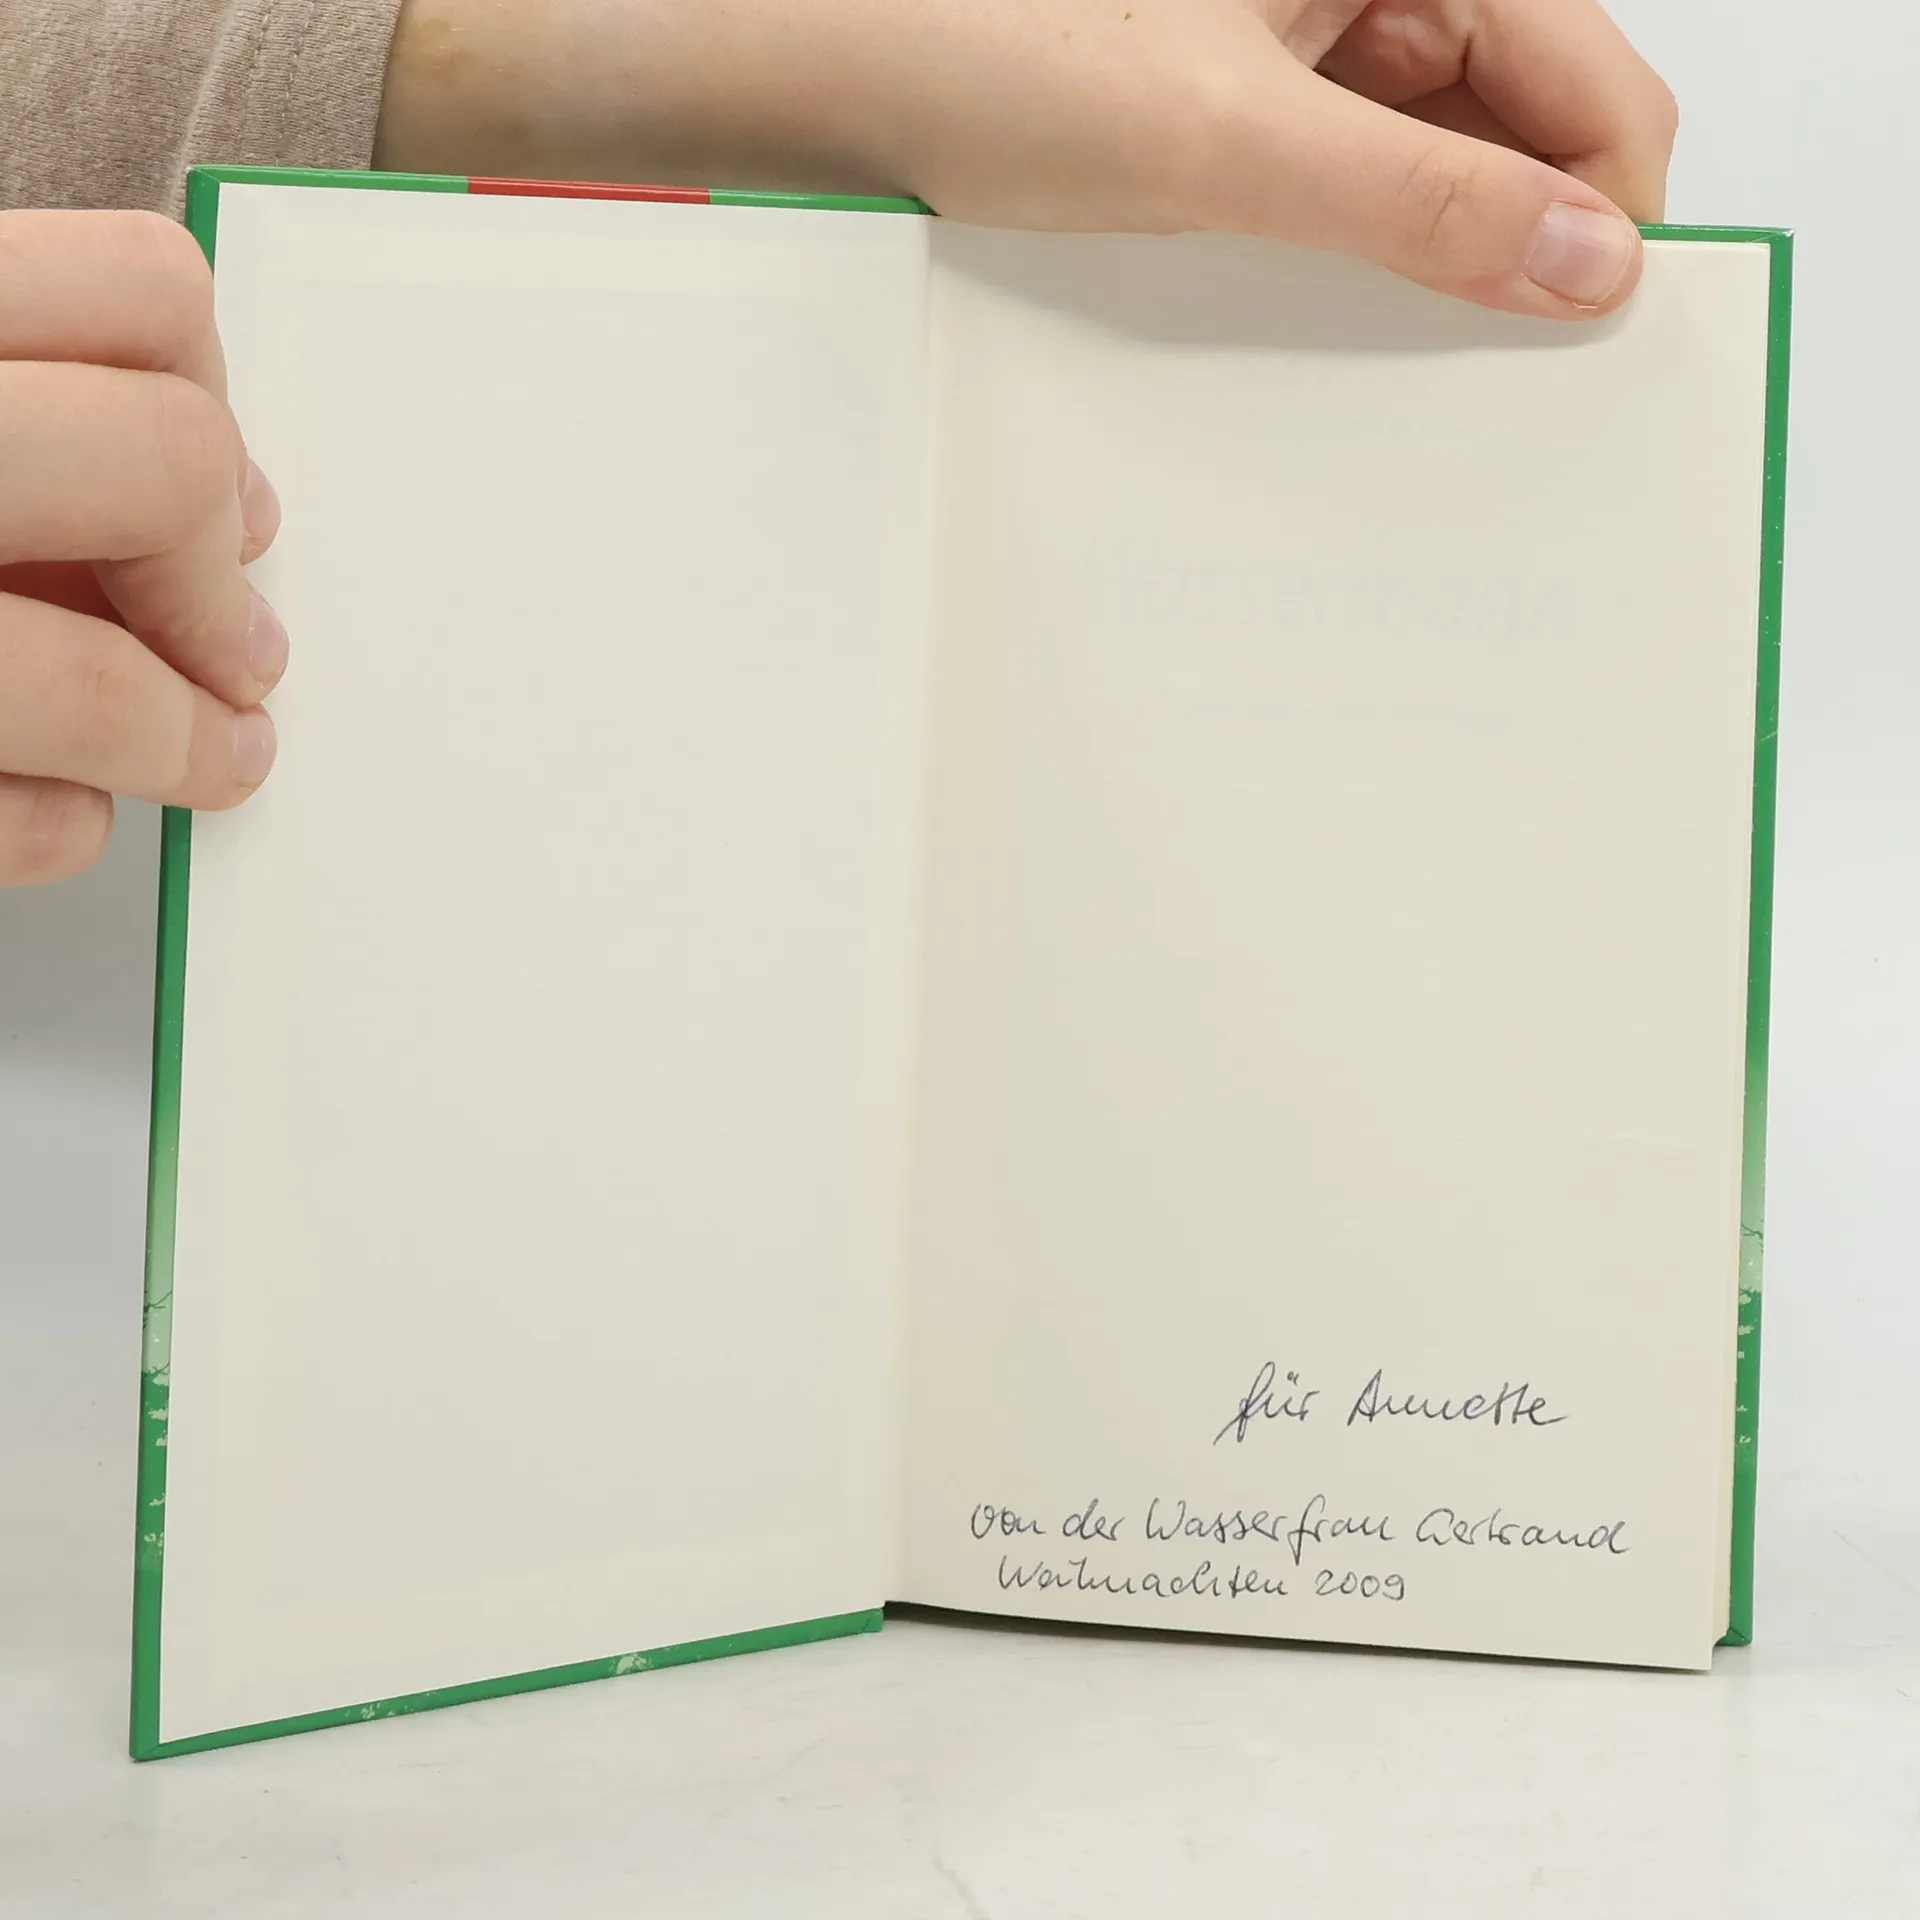 für Annette
von der Wasserfrau Gertraud
Weihnachten 2009